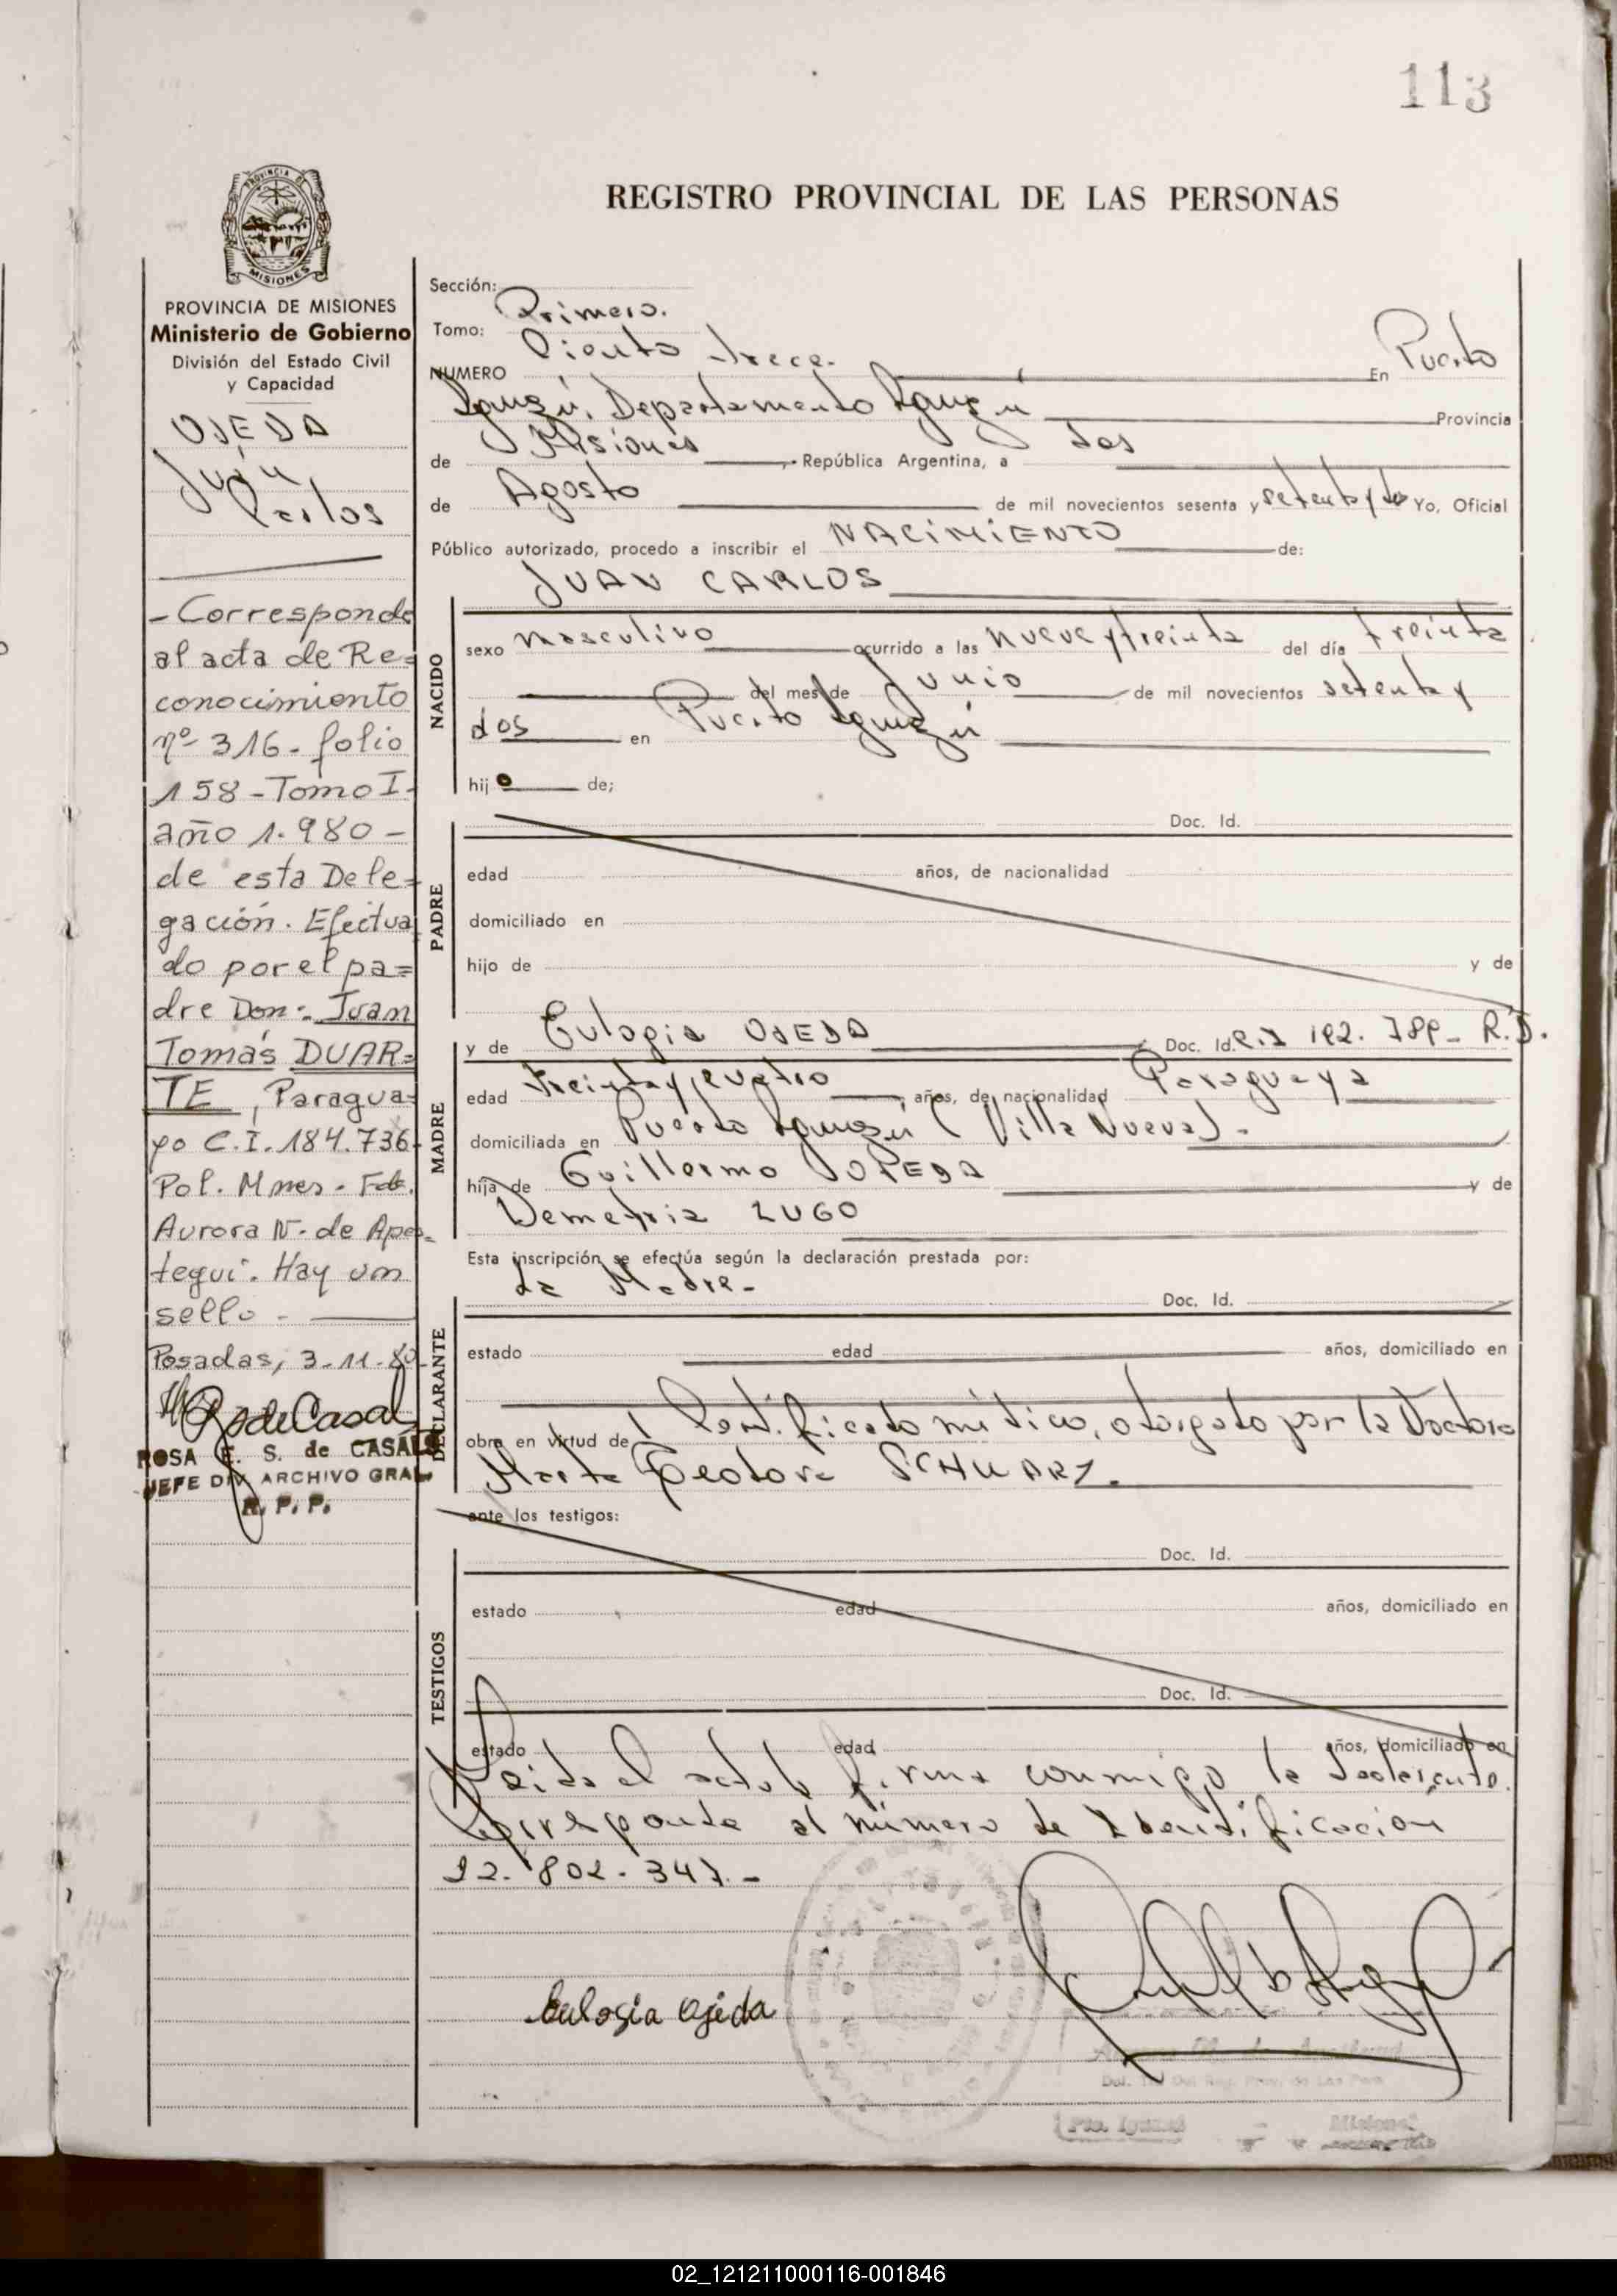 113
PROVINCIA DE
MISIONES
REGISTRO PROVINCIAL DE LAS PERSONAS
PROVINCIA DE MISIONES
Ministerio de Gobierno
División del Estado Civil
y Capacidad
OJEDA
Juan
Carlos
- Corresponde
al acta de Re=
conocimiento
nº 316 - folio
158 - Tomo I -
año 1.980 -
de esta Dele=
gación. Efectua
do por el pa=
dre Don: Juan
Tomás DUAR=
TE, Paragua=
yo C.I. 184.736-
Pol. Mnes - Fdo.
Aurora N. de Apes=
tegui. Hay un
sello -
Posadas, 3-11-80-
RSdeCasals
ROSA E. S. de CASALS
JEFE DIV. ARCHIVO GRAL.
R. P. P.
Sección:
Tomo: Primero.
NUMERO Ciento trece. En Puerto
Iguazú, Departamento Iguazú Provincia
de Misiones República Argentina, a dos
de Agosto de mil novecientos sesenta y setenta y dos Yo, Oficial
Público autorizado, procedo a inscribir el NACIMIENTO de:
JUAN CARLOS
NACIDO
sexo masculino ocurrido a las nueve y treinta del día treinta
del mes de Junio de mil novecientos setenta y
dos en Puerto Iguazú
hijo de;
PADRE
Doc. Id.
edad años, de nacionalidad
domiciliado en
hijo de y de
MADRE
y de Eulogia OJEDA Doc. Id. C.I 192. 789- R.D.
edad treinta y cuatro años, de nacionalidad Paraguaya
domiciliada en Puerto Iguazú ( Villa Nueva) -
hija de Guillermo OJEDA y de
Demetria LUGO
Esta inscripción se efectúa según la declaración prestada por:
DECLARANTE
La Madre- Doc. Id.
estado edad años, domiciliado en
obra en virtud de Certificado médico, otorgado por la Doctora
Marta Teodora SCHWARZ.
ante los testigos:
TESTIGOS
Doc. Id.
estado edad años, domiciliado en
Doc. Id.
estado edad años, domiciliado en
Leida el acta la firma conmigo la declarante.
Corresponde al número de Identificación
22. 802. 347.-
Eulogia Ojeda
Pto. Iguazú - Misiones
02_121211000116-001846